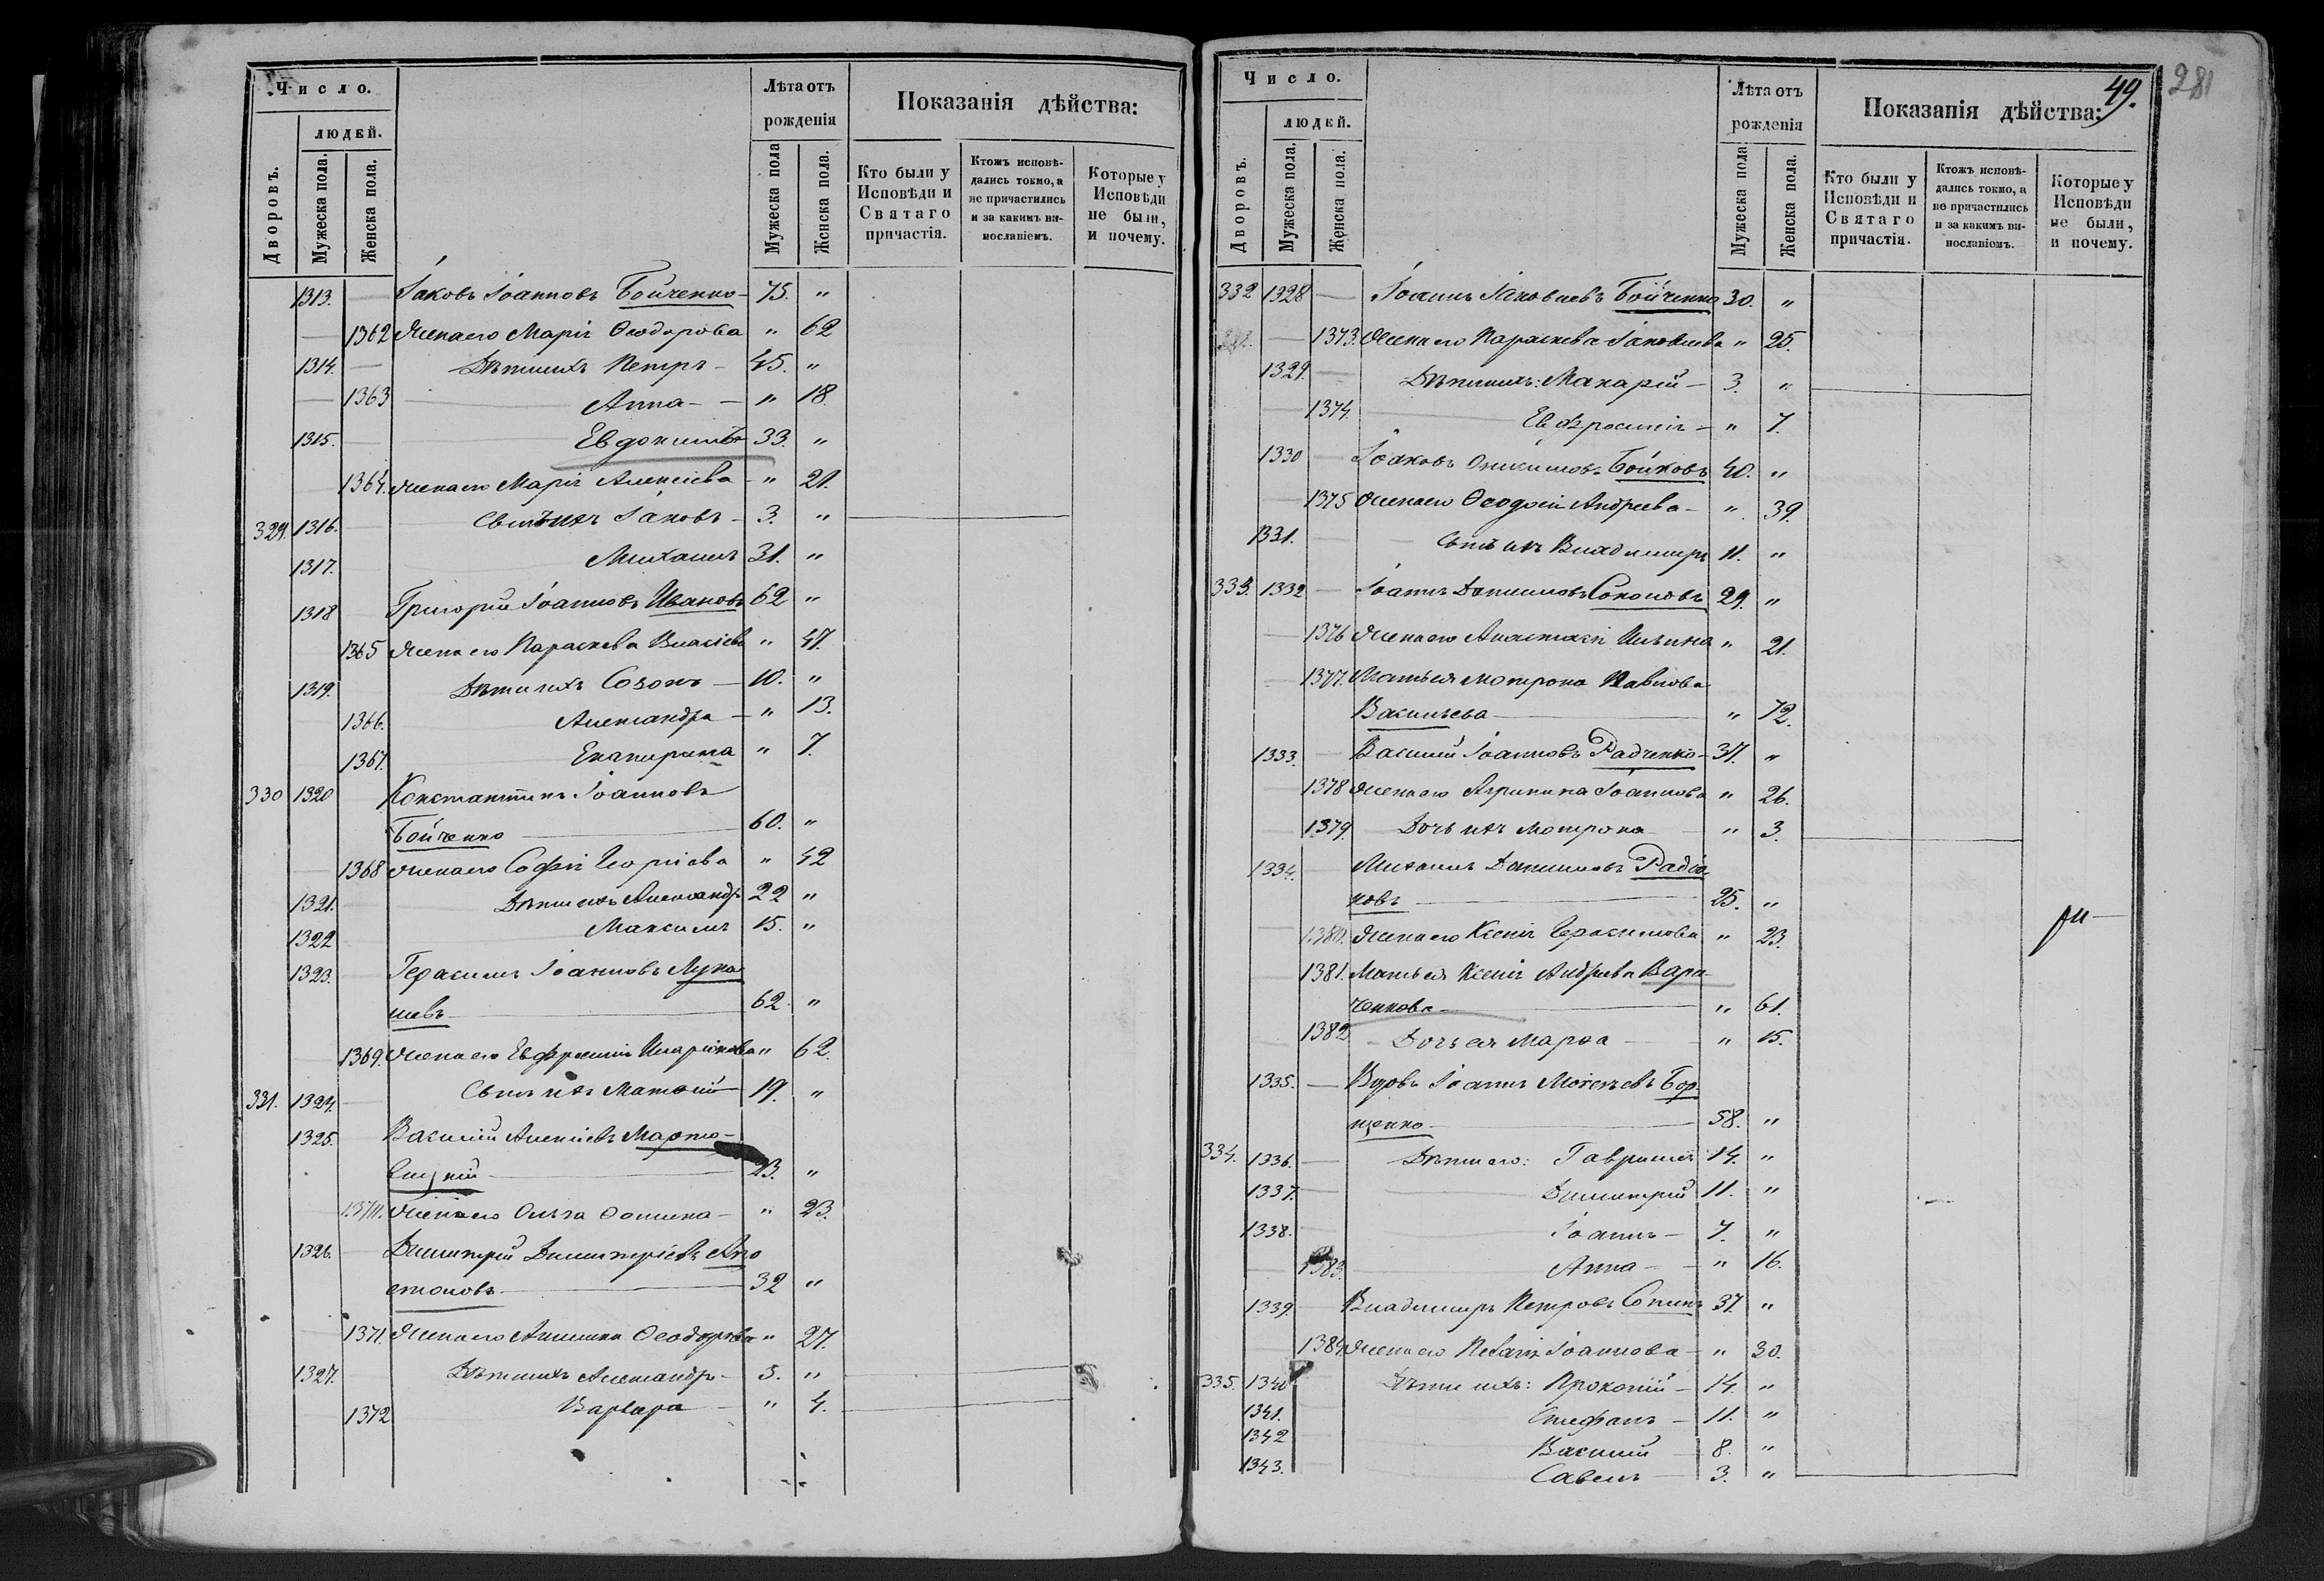 Число.
людей.
Дворовъ.
Мужеска пола.
Женска пола.
Лѣта отъ рожденія
Мужеска пола
Женска пола.
Показанія дѣйства:
Кто были у Исповѣди и Святаго причастія.
Ктожъ исповѣдались токмо, а не причастились и за какимъ винословіемъ.
Которые у Исповѣди не были, и почему.
1313. — Іаковъ Іоанновъ Бойченко — 75. "
— 1362 Жена его Марія Ѳеодорова " 62
1314. — Дѣти ихъ Петръ — 45. "
— 1363 Анна — " 18.
1315. — Евдокимъ 33. "
1364. Жена его Марія Алексіева — " 21.
329. 1316. Сынъ ихъ Іаковъ — 3. "
1317. Михаилъ 31. "
1318 Григорій Іоанновъ Ивановъ 62 "
1365 Жена его Параскева Власіева " 47.
1319. Дѣти ихъ Созонъ — 10. "
1366. Александра — " 13.
1367. Екатерина " 7.
330 1320 Константинъ Іоанновъ
Бойченко — 60. "
1368 Жена его Софія Георгіева " 42
1321. Дѣти ихъ Александръ 22 "
1322 Максимъ 15. "
1323. Герасимъ Іоанновъ Лука
шевъ — 62. "
1369. Жена его Евфросинія Иларіонова " 62.
331. 1324. Сынъ ихъ Матѳій — 19. "
1325. Василій Алексіевъ Марто-
вицкій — 23. "
1370. Жена его Ольга Ѳомина — " 23.
1326. Димитрій Димитріевъ Апо
столовъ — 32 "
1371. Жена его Акилина Ѳеодорова " 27.
1327. Дѣти ихъ Александръ — 5. "
1372 Варвара — " 4.
49.
281
Число.
людей.
Дворовъ.
Мужеска пола.
Женска пола.
Лѣта отъ рожденія
Мужеска пола
Женска пола.
Показанія дѣйства:
Кто были у Исповѣди и Святаго причастія.
Ктожъ исповѣдались токмо, а не причастились и за какимъ винословіемъ.
Которые у Исповѣди не были, и почему.
332 1328 — Іоаннъ Іаковлевъ Бойченко 30. "
— 1373. Жена его Параскева Іаковлева " 25.
1329. — Дѣти ихъ: Макарій — 3. "
— 1374. Евфросинія — " 7.
1330 — Іоаковъ Бойковъ 40. "
— 1375 Жена его Ѳеодосія Андреева — " 39.
1331. — Сынъ ихъ Владимиръ 11. "
333. 1332 — Іоаннъ Даниловъ Соколовъ 29. "
— 1376 Жена его Анастасія Ильина " 21.
— 1377. Мать ея Мотрона Павлова
Васильева — " 72.
1333. — Василій Іоанновъ Радченко — 37. "
— 1378 Жена его Агрипина Іоаннова " 26.
— 1379. Дочь ихъ Мотрона — " 3.
1334. Михаилъ Даниловъ Радіо
новъ — 25. "
— 1380. Жена его Ксенія Герасимова " 23.
1381. Мать ея Ксенія Андреева Вара-
ченкова — " 61.
1382 — Дочь ея Марѳа — " 15.
1335. — Вдовъ Іоаннъ Моѵсеевъ Бор
щенко — 58. "
334. 1336. — Дѣти его: Гавріилъ 14. "
1337. — Димитрій 11. "
1338. Іоаннъ — 7. "
1383. Анна — " 16.
1339. — Владимиръ Петровъ Сопинъ 37. "
1384. Жена его Пелагія Іоаннова — " 30.
335. 1340 Дѣти ихъ: Прокопій — 14. "
1341. Стефанъ — 11. "
1342 Василій 8. "
1343. Савелъ — 3. "